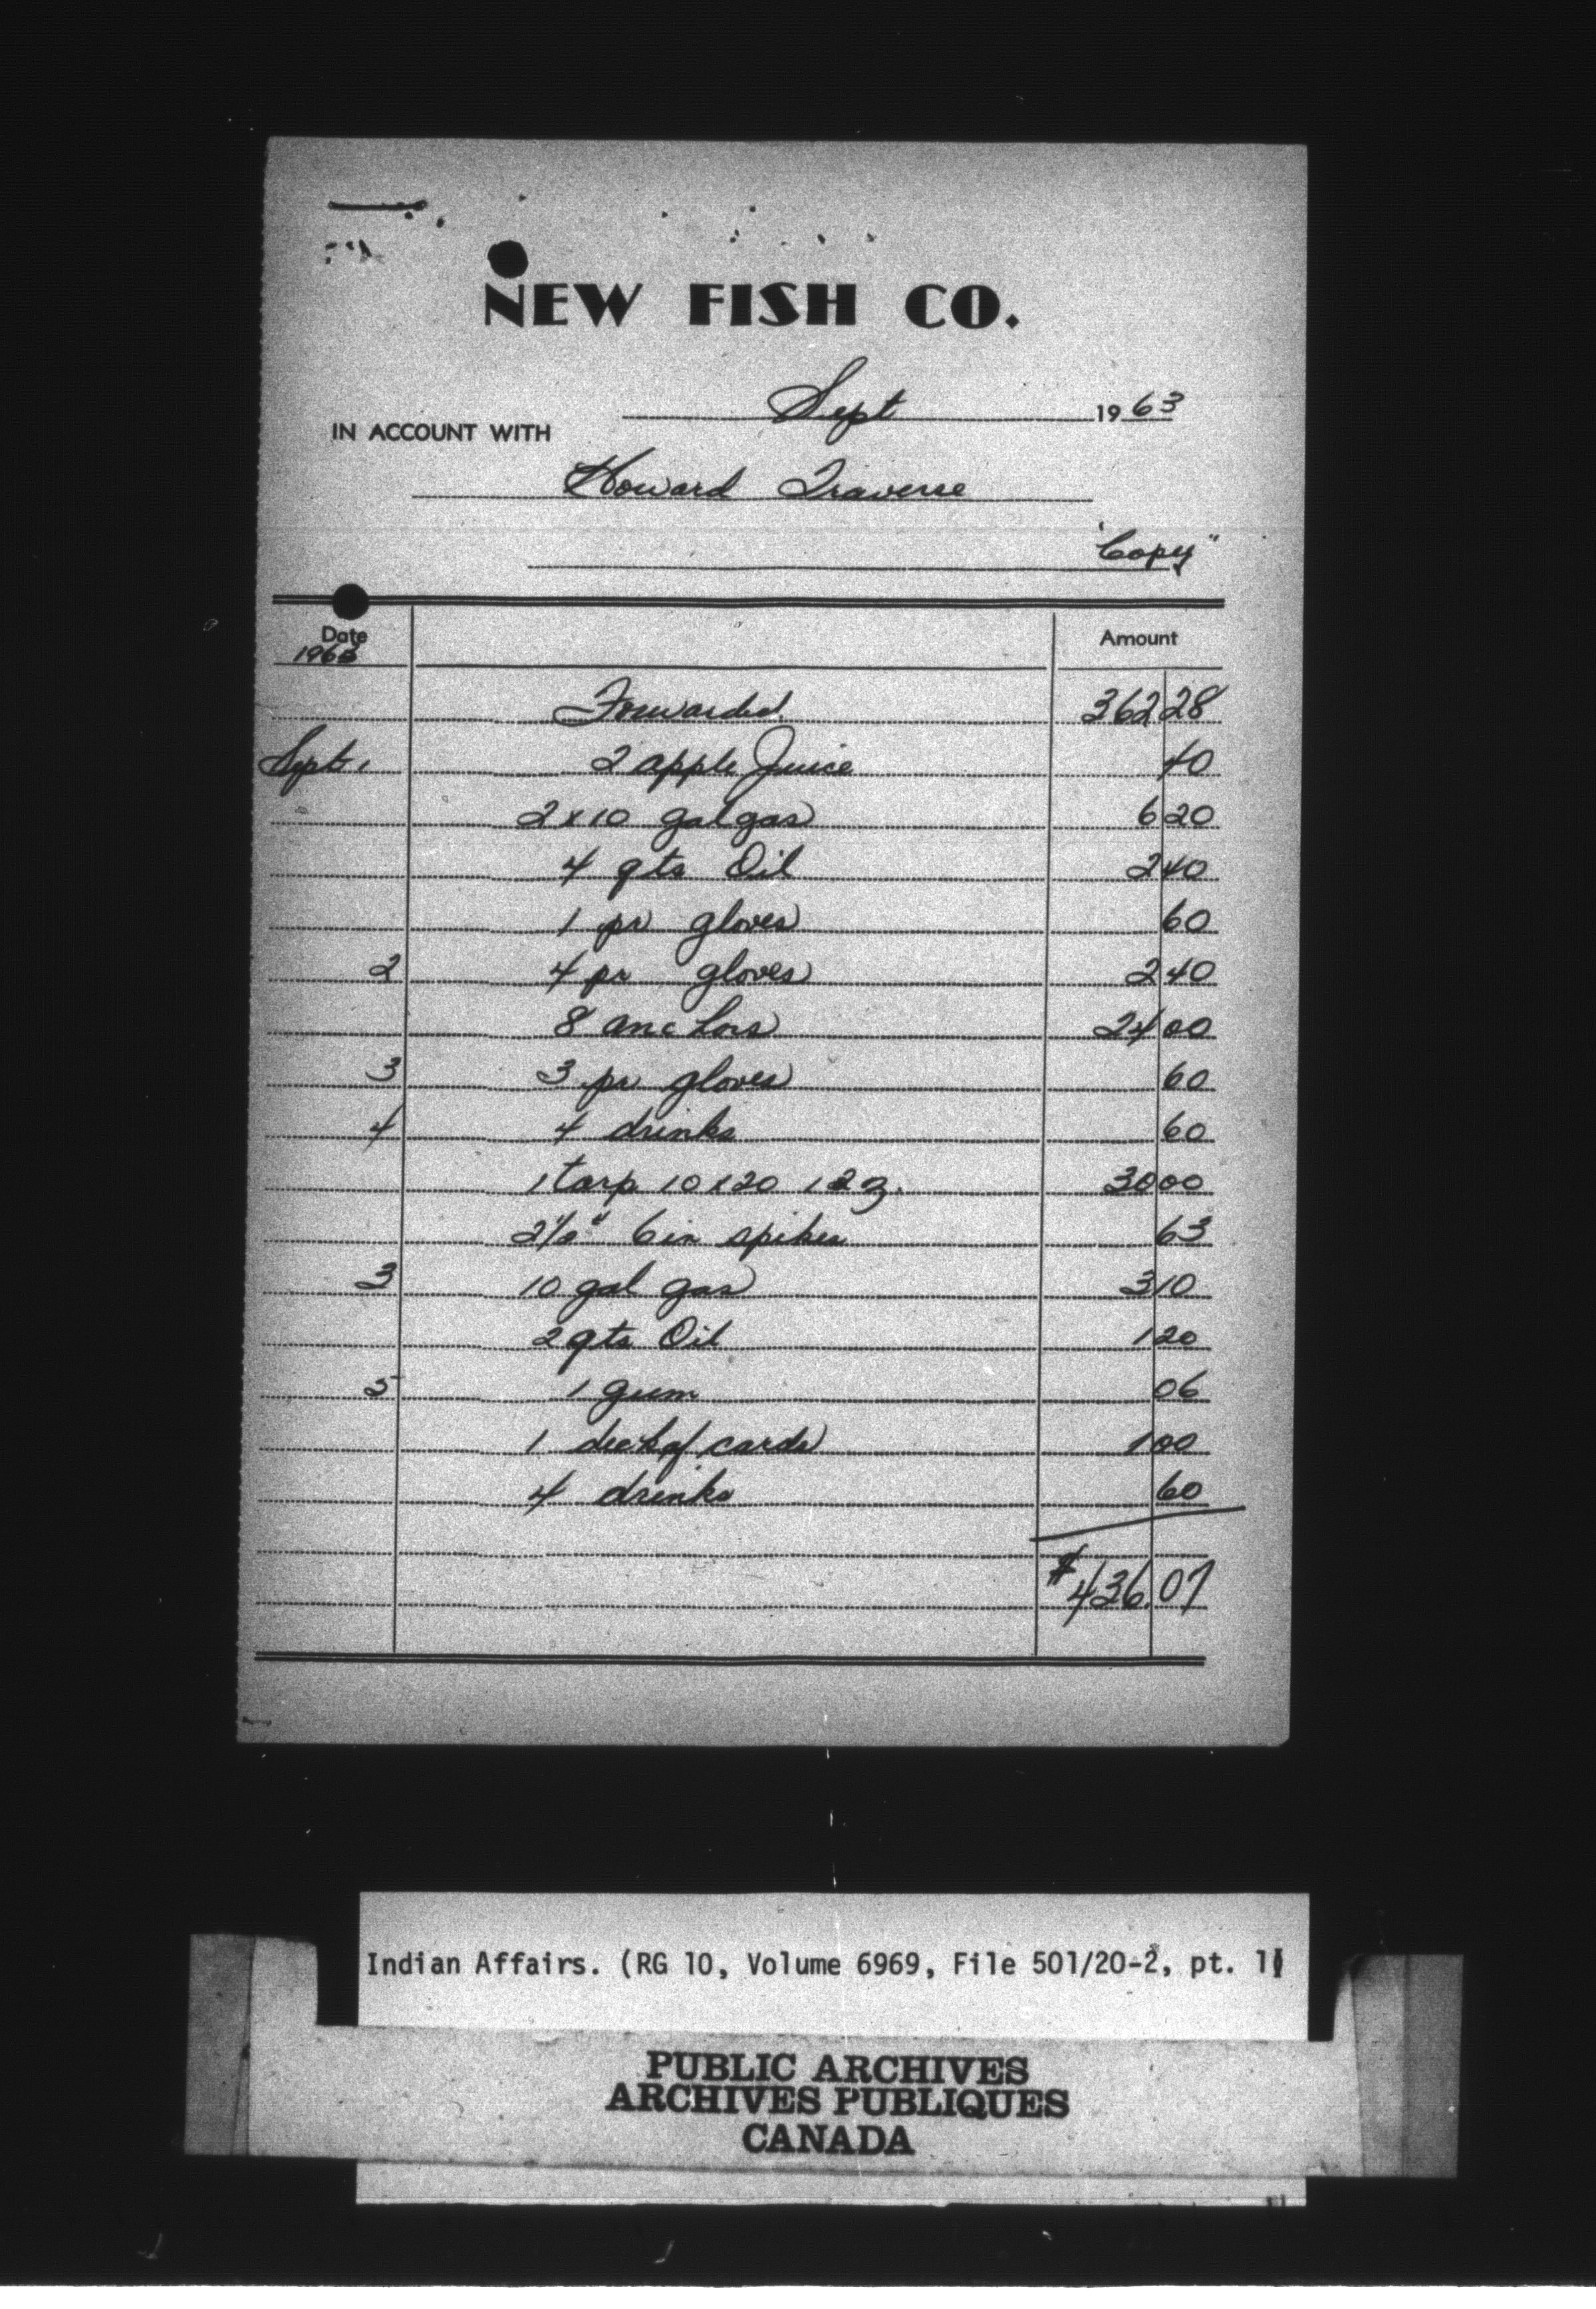 NEW FISH CO.
Sept 1963
IN ACCOUNT WITH
Howard Traverse
"Copy"
Date Amount
1963
Forwarded 362 28
Sept 1 2 apple Juice 40
2 x 10 gal gas 6 20
4 qts Oil 2 40
1 pr gloves 60
2 4 pr gloves 2 40
8 anchors 24 00
3 3 pr gloves 60
4 4 drinks 60
1 tarp 10 x 20 12 oz. 30 00
2 1/2" 6 in spikes 63
3 10 gal gas 3 10
2 qts Oil 1 20
5 1 gum 06
1 deck of cards 1 00
4 drinks 60
$436.07
Indian Affairs. (RG 10, Volume 6969, File 501/20-2, pt. 1)
PUBLIC ARCHIVES
ARCHIVES PUBLIQUES
CANADA